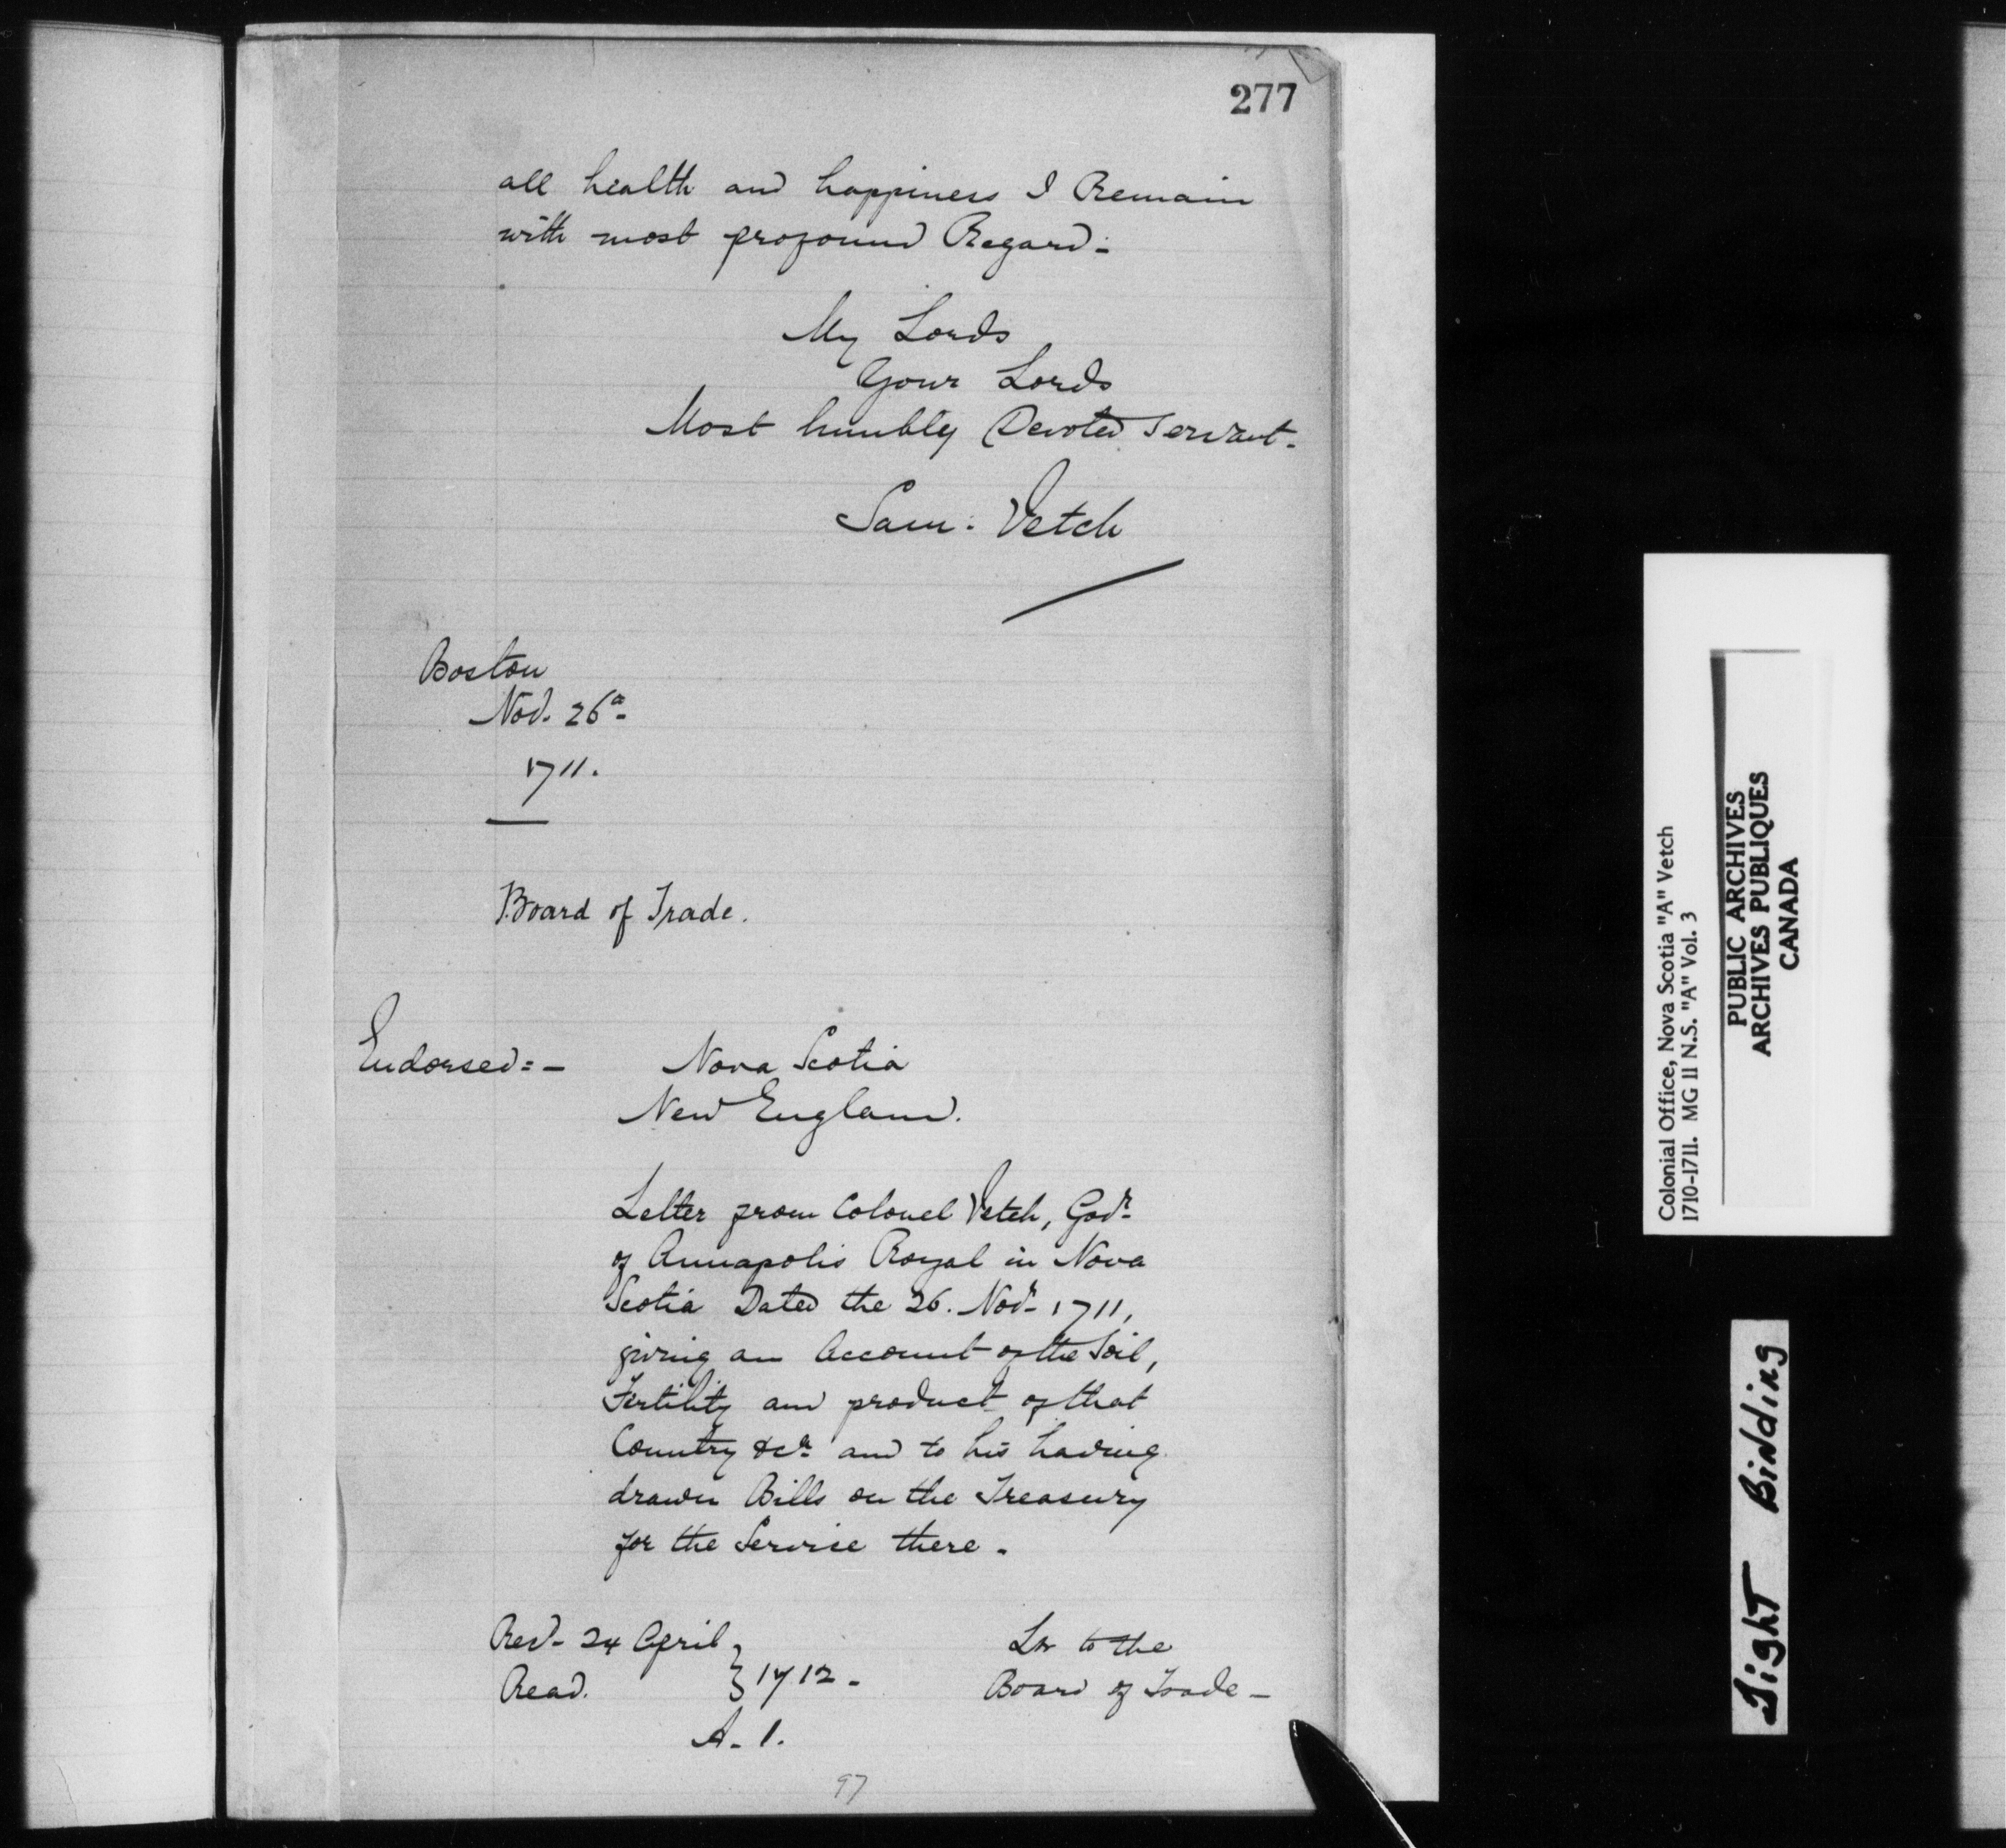 277
all health and happiness I Remain
with most profound Regard:
My Lords
Your Lords
Most humbly Devoted Servant.
Sam: Vetch
Boston
Nov. 26a
1711.
Board of Trade.
Endorsed:-
Nova Scotia
New England.
Letter from Colonel Vetch, Govr
of Annapolis Royal in Nova
Scotia Dated the 26. Novr 1711,
giving an Account of the Soil,
Fertility and product of that
Country &ca and to his having
drawn Bills on the Treasury
for the Service there.
Recd 24 April
Read.
} 1712.
A-1.
Lr to the
Board of Trade-
97
Colonial Office, Nova Scotia "A" Vetch
1710-1711. MG 11 N.S. "A" Vol. 3
PUBLIC ARCHIVES
ARCHIVES PUBLIQUES
CANADA
Tight Binding